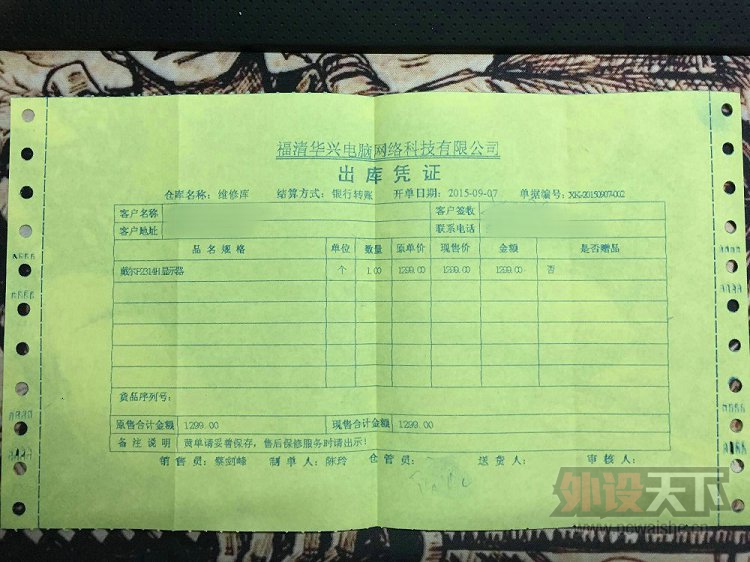 福清华兴电脑网络科技有限公司
出库凭证
仓库名称：维修库 结算方式：银行转账 开单日期：2015-09-07 单据编号：XK-20150907-002
客户名称 客户签收
客户地址 联系电话
品名规格 单位 数量 原单价 现售价 金额 是否赠品
戴尔P2314H显示器 个 1.00 1299.00 1299.00 1299.00 否
货品序列号：
原售合计金额 1299.00 现售合计金额 1299.00
备注说明 黄单请妥善保存，售后保修服务时请出示！
销售员：蔡剑峰 制单人：陈玲 仓管员： 送货人： 审核人：
外设天下